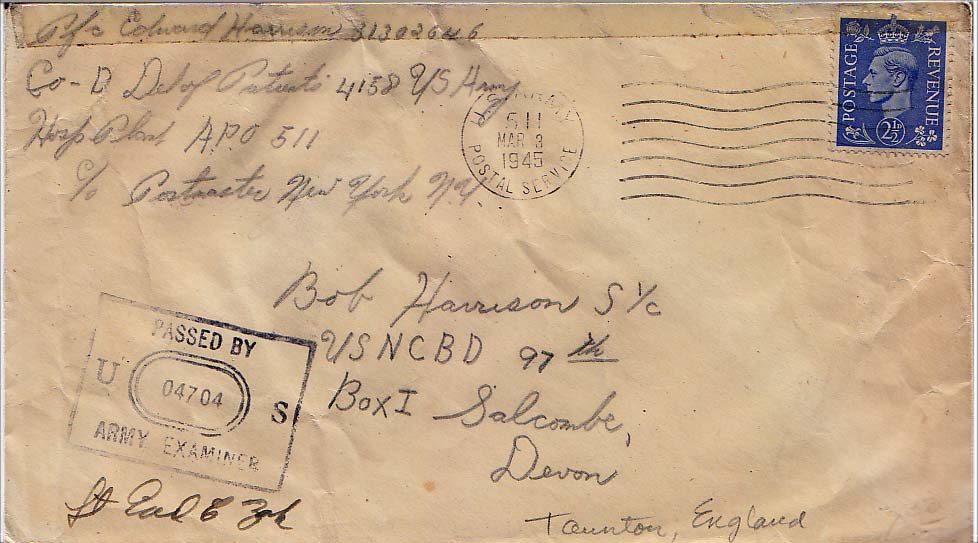 Pfc Edward Harrison 31302646
Co-D Det of Patients 4158 US Army
Hosp Plant APO 511
c/o Postmaster New York N.Y.
U.S. ARMY
511
MAR 3
1945
POSTAL SERVICE
POSTAGE REVENUE
2½D
Bob Harrison S 1/c
USNCBD 97th
Box I Salcombe,
Devon
Taunton, England
PASSED BY
U 04704 S
ARMY EXAMINER
Lt